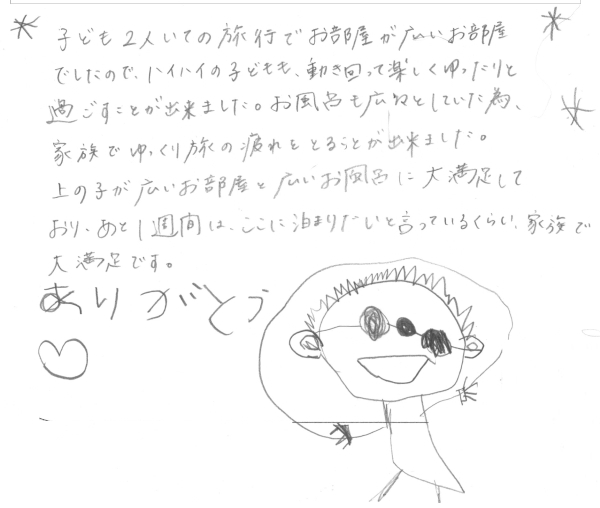 子ども2人いての旅行でお部屋が広いお部屋
でしたので、ハイハイの子どもも、動き回って楽しくゆったりと
過ごすことが出来ました。お風呂も広々としていた為、
家族でゆっくり旅の疲れをとることが出来ました。
上の子が広いお部屋と広いお風呂に大満足して
おり、あと1週間は、ここに泊まりたいと言っているくらい、家族で
大満足です。
ありがとう